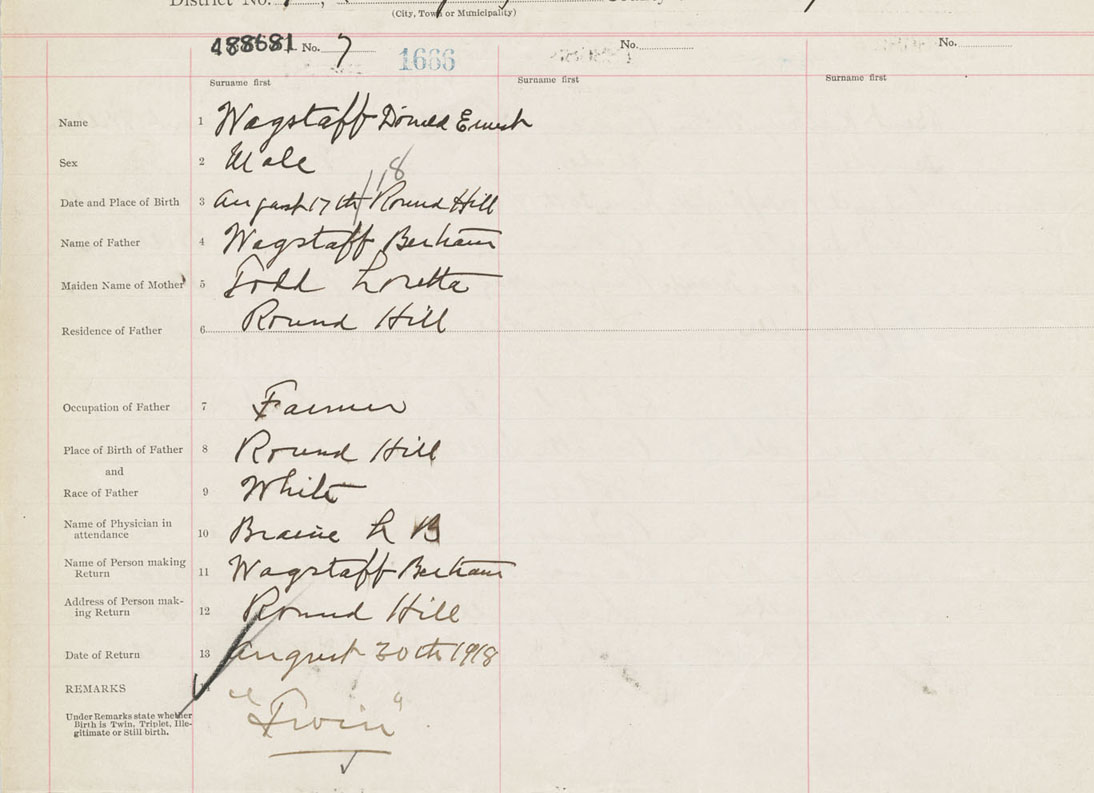 District No.
(City, Town or Municipality)
488681 No. 7 1666 No. No.
Surname first Surname first Surname first
Name 1 Wagstaff Donald Ernest
Sex 2 Male
Date and Place of Birth 3 August 17th/18 Round Hill
Name of Father 4 Wagstaff Bertram
Maiden Name of Mother 5 Todd Loretta
Residence of Father 6 Round Hill
Occupation of Father 7 Farmer
Place of Birth of Father 8 Round Hill
and
Race of Father 9 White
Name of Physician in
attendance 10 Braine L B
Name of Person making
Return 11 Wagstaff Bertram
Address of Person mak-
ing Return 12 Round Hill
Date of Return 13 August 30th 1918
REMARKS
Under Remarks state whether
Birth is Twin, Triplet, Ille-
gitimate or Still birth.
"Twin"